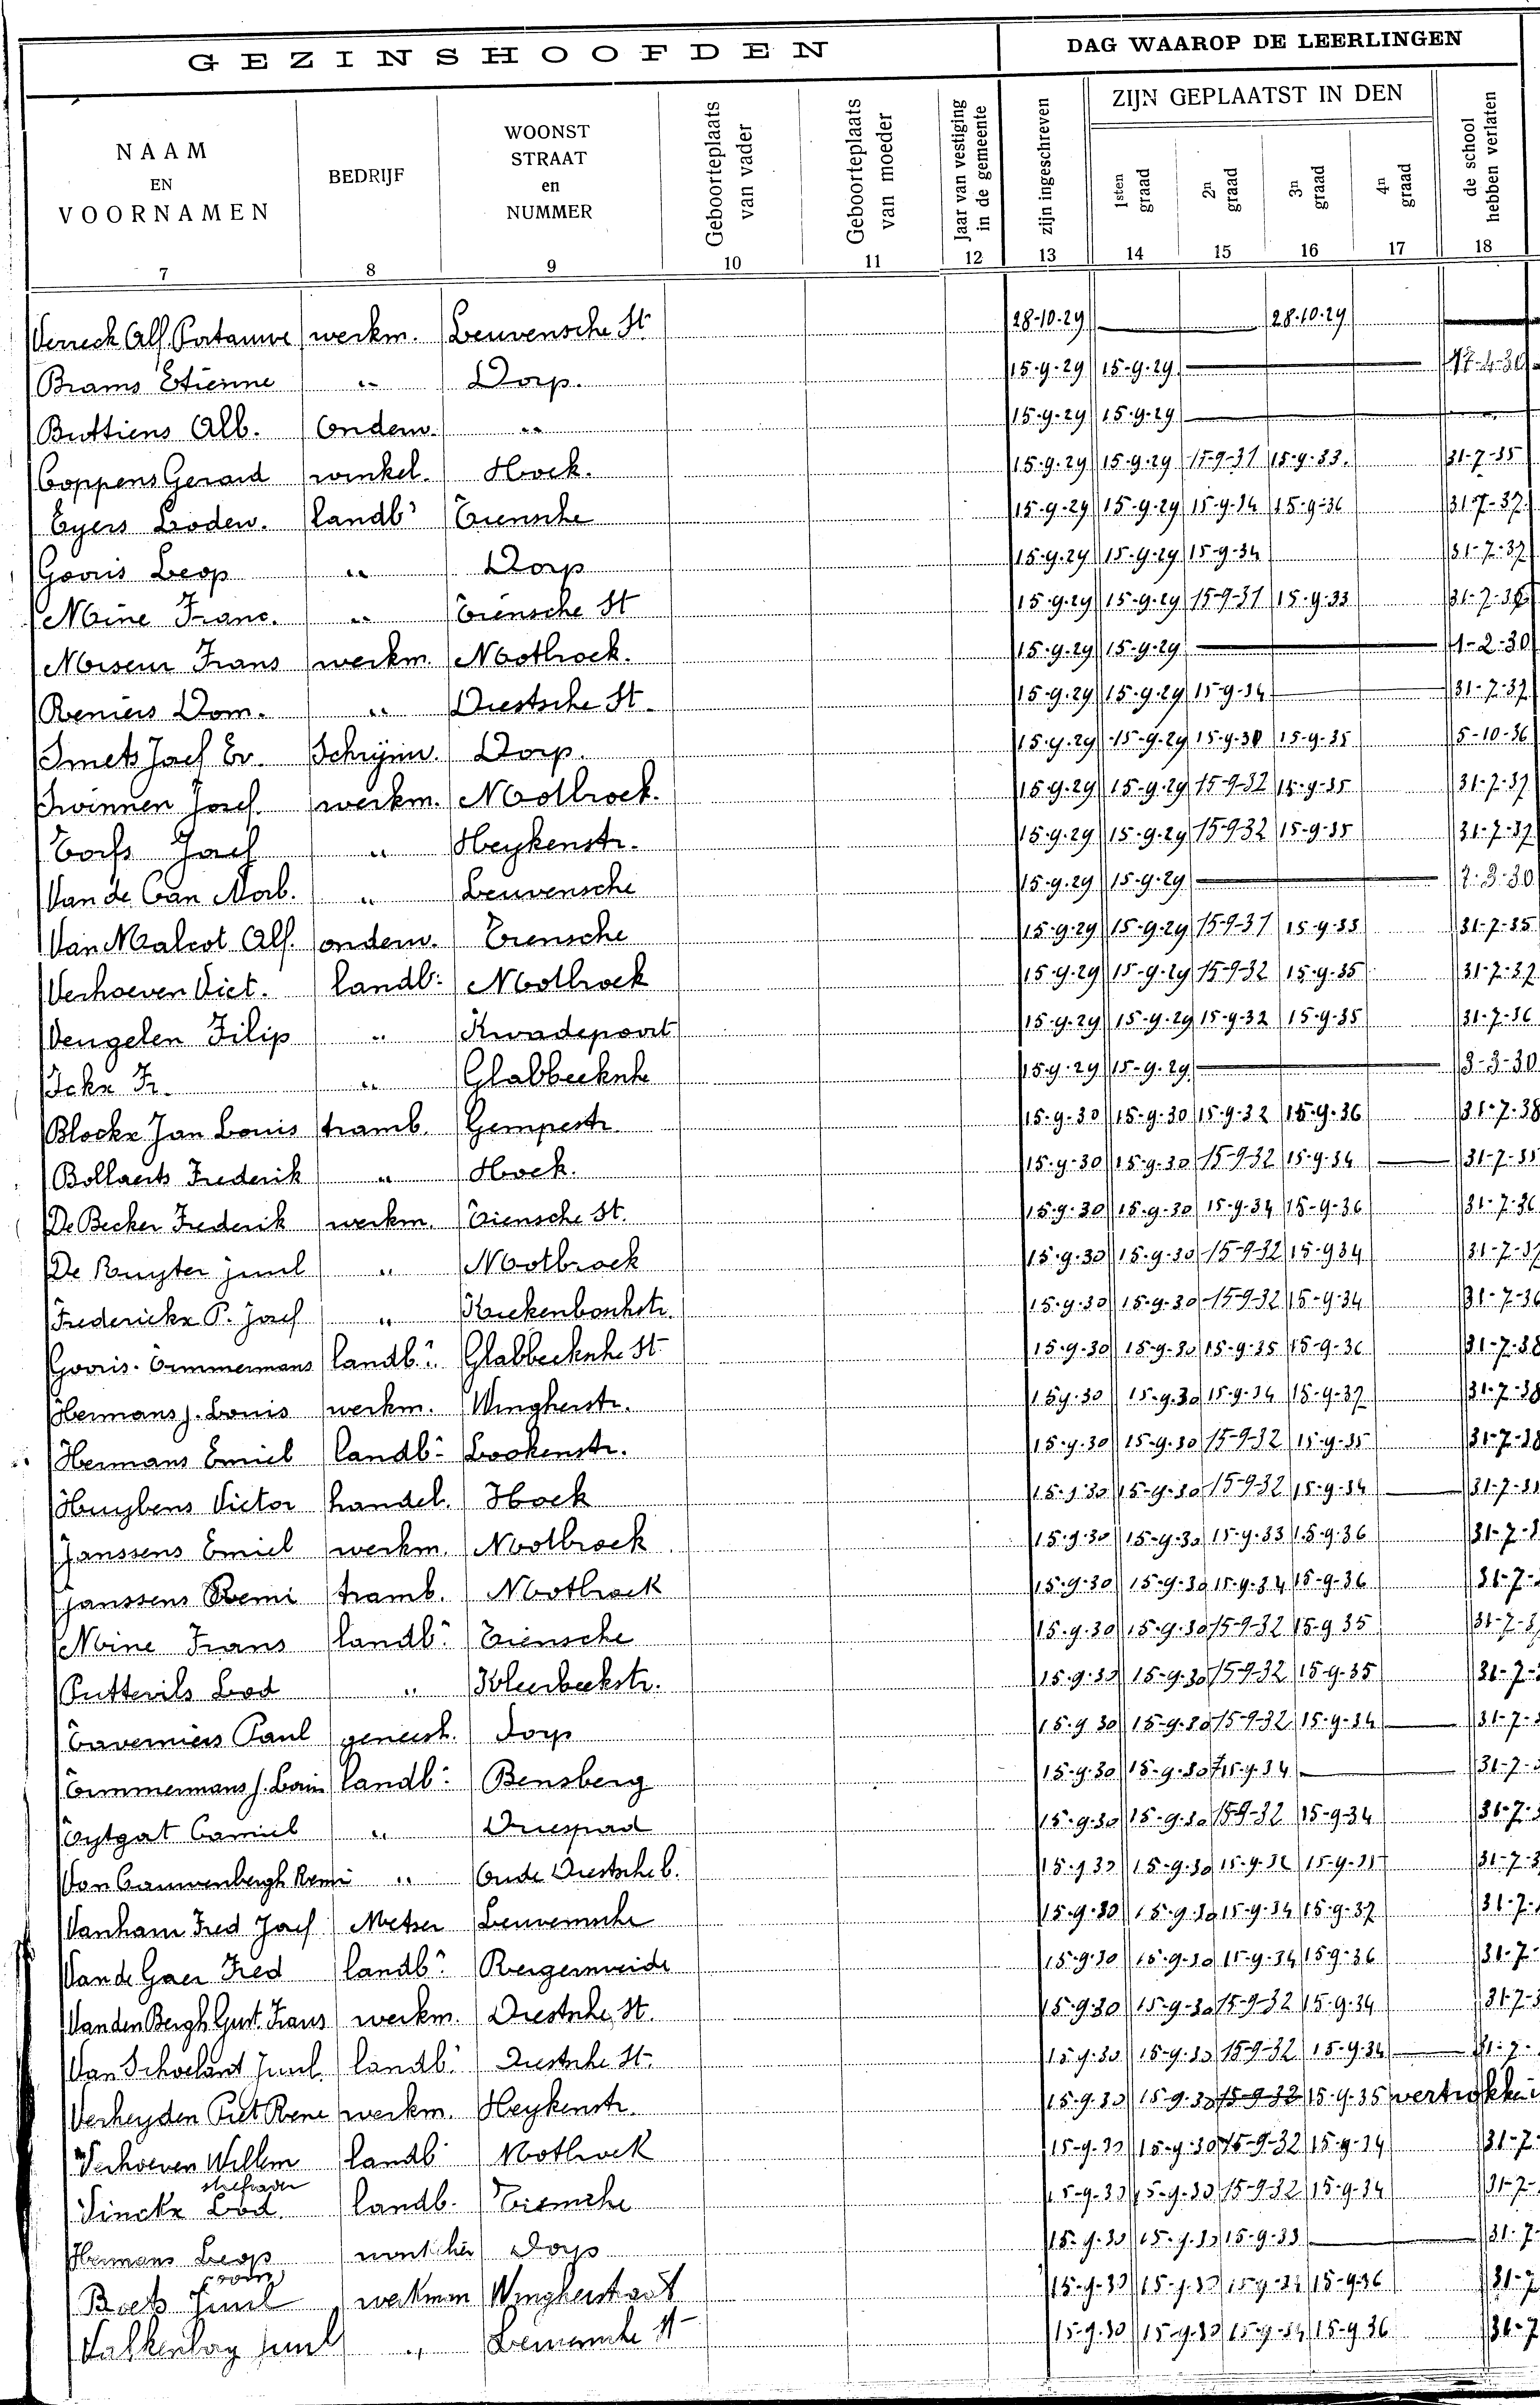 GEZINSHOOFDEN DAG WAAROP DE LEERLINGEN
NAAM EN VOORNAMEN BEDRIJF WOONST STRAAT en NUMMER Geboorteplaats van vader Geboorteplaats van moeder Jaar van vestiging in de gemeente zijn ingeschreven ZIJN GEPLAATST IN DEN 1sten graad 2n graad 3n graad 4n graad de school hebben verlaten
7 8 9 10 11 12 13 14 15 16 17 18
Verreck Alf. werkm. Leuvensche St 28-10-29 28-10-29
Brams Etienne " Dorp. 15-9-29 15-9-29 17-4-30
Buttiens Alb. Onderw. " 15-9-29 15-9-29
Coppens Gerard winkel. Hoek. 15-9-29 15-9-29 15-9-31 15-9-33. 31-7-35
Eyers Lodew. landbr Tiensche 15-9-29 15-9-29 15-9-34 15-9-36 31-7-37
Goovis Leop " Dorp 15-9-29 15-9-29 15-9-34 31-7-37
Moine Franc. " Tiensche St 15-9-29 15-9-29 15-9-31 15-9-33 31-7-36
Frans werkm. Mootbroek. 15-9-29 15-9-29 1-2-30
Reniers Dom. " Diestsche St. 15-9-29 15-9-29 15-9-34 31-7-37
Smets Jozef Ev. Schrijnw. Dorp. 15-9-29 15-9-29 15-9-30 15-9-35 5-10-36
Swinnen Josef werkm. Mootbroek. 15-9-29 15-9-29 15-9-32 15-9-35 31-7-37
Torfs Jozef " Heykenstr. 15-9-29 15-9-29 15-9-32 15-9-35 31-7-37
Van de Can " Leuvensche 15-9-29 15-9-29 7-3-30
Van Malcot Alf. onderw. Tiensche 15-9-29 15-9-29 15-9-31 15-9-33 31-7-35
Verhoeven Vict. landb: Mootbroek 15-9-29 15-9-29 15-9-32 15-9-35 31-7-37
Vengelen Filip " Kwadepoort 15-9-29 15-9-29 15-9-32 15-9-35 31-7-36
Fr. " 15-9-29 15-9-29 3-3-30
Blockx Jan Louis tramb. Gempestr. 15-9-30 15-9-30 15-9-32 15-9-36 31-7-38
Bollaerts Frederik " Hoek. 15-9-30 15-9-30 15-9-32 15-9-34 31-7-35
De Becker Frederik werkm. Tiensche St. 15-9-30 15-9-30 15-9-34 15-9-36 31-7-36
De Ruyter " Mootbroek 15-9-30 15-9-30 15-9-32 15-9-34 31-7-37
Frederickx P. Josef " Krickenboschstr. 15-9-30 15-9-30 15-9-32 15-9-34 31-7-36
Goovis-Timmermans landb.r 15-9-30 15-9-30 15-9-35 15-9-36 31-7-38
Hermans J. Louis werkm. Wingherstr. 15-9-30 15-9-30 15-9-34 15-9-37 31-7-38
Hermans Emiel landbr Lookenstr. 15-9-30 15-9-30 15-9-32 15-9-35 31-7-38
Huybens Victor handel. Hoek 15-9-30 15-9-30 15-9-32 15-9-34 31-7-
Janssens Emiel werkm. Mootbroek 15-9-30 15-9-30 15-9-33 15-9-36 31-7-
Janssens Remi tramb. Mootbroek 15-9-30 15-9-30 15-9-34 15-9-36 31-7-
Moine Frans landbr Tiensche 15-9-30 15-9-30 15-9-32 15-9-35 31-7-
Puttevils Lod " Kleerbeekstr. 15-9-30 15-9-30 15-9-32 15-9-35 31-7-
Taverniers Paul geneesh. Dorp 15-9-30 15-9-30 15-9-32 15-9-34 31-7-
Timmermans J. landbr Bensberg 15-9-30 15-9-30 15-9-34 31-7-
Tytgat Camiel " Driespad 15-9-30 15-9-30 15-9-32 15-9-34 31-7-
Van Cauwenbergh Remi " Oude Diestsche b. 15-9-30 15-9-30 31-7-
Vanham Fred Josef Metser Leuvensche 15-9-30 15-9-30 15-9-34 15-9-37 31-7-
Van de Gaer Fred landbr 15-9-30 15-9-30 15-9-34 15-9-36 31-7-
Vanden Bergh Gust. Frans werkm. Diestsche St. 15-9-30 15-9-30 15-9-32 15-9-34 31-7-
landb. Diestsche St. 15-9-30 15-9-30 15-9-32 15-9-34 31-7-
Verheyden Piet Rene werkm. Heykenstr. 15-9-30 15-9-30 15-9-32 15-9-35 vertrokken
Verhoeven Willem landb Mootbroek 15-9-30 15-9-30 15-9-32 15-9-34 31-7-
stiefvader
Sinckx Lod. landb. Tiensche 15-9-30 15-9-30 15-9-32 15-9-34 31-7-
Hermans Leop Dorp 15-9-30 15-9-30 15-9-33 31-7-
Boets werkman Wingherstraat 15-9-30 15-9-30 15-9-34 15-9-36 31-7
" 15-9-30 15-9-30 15-9-34 15-9-36 31-7